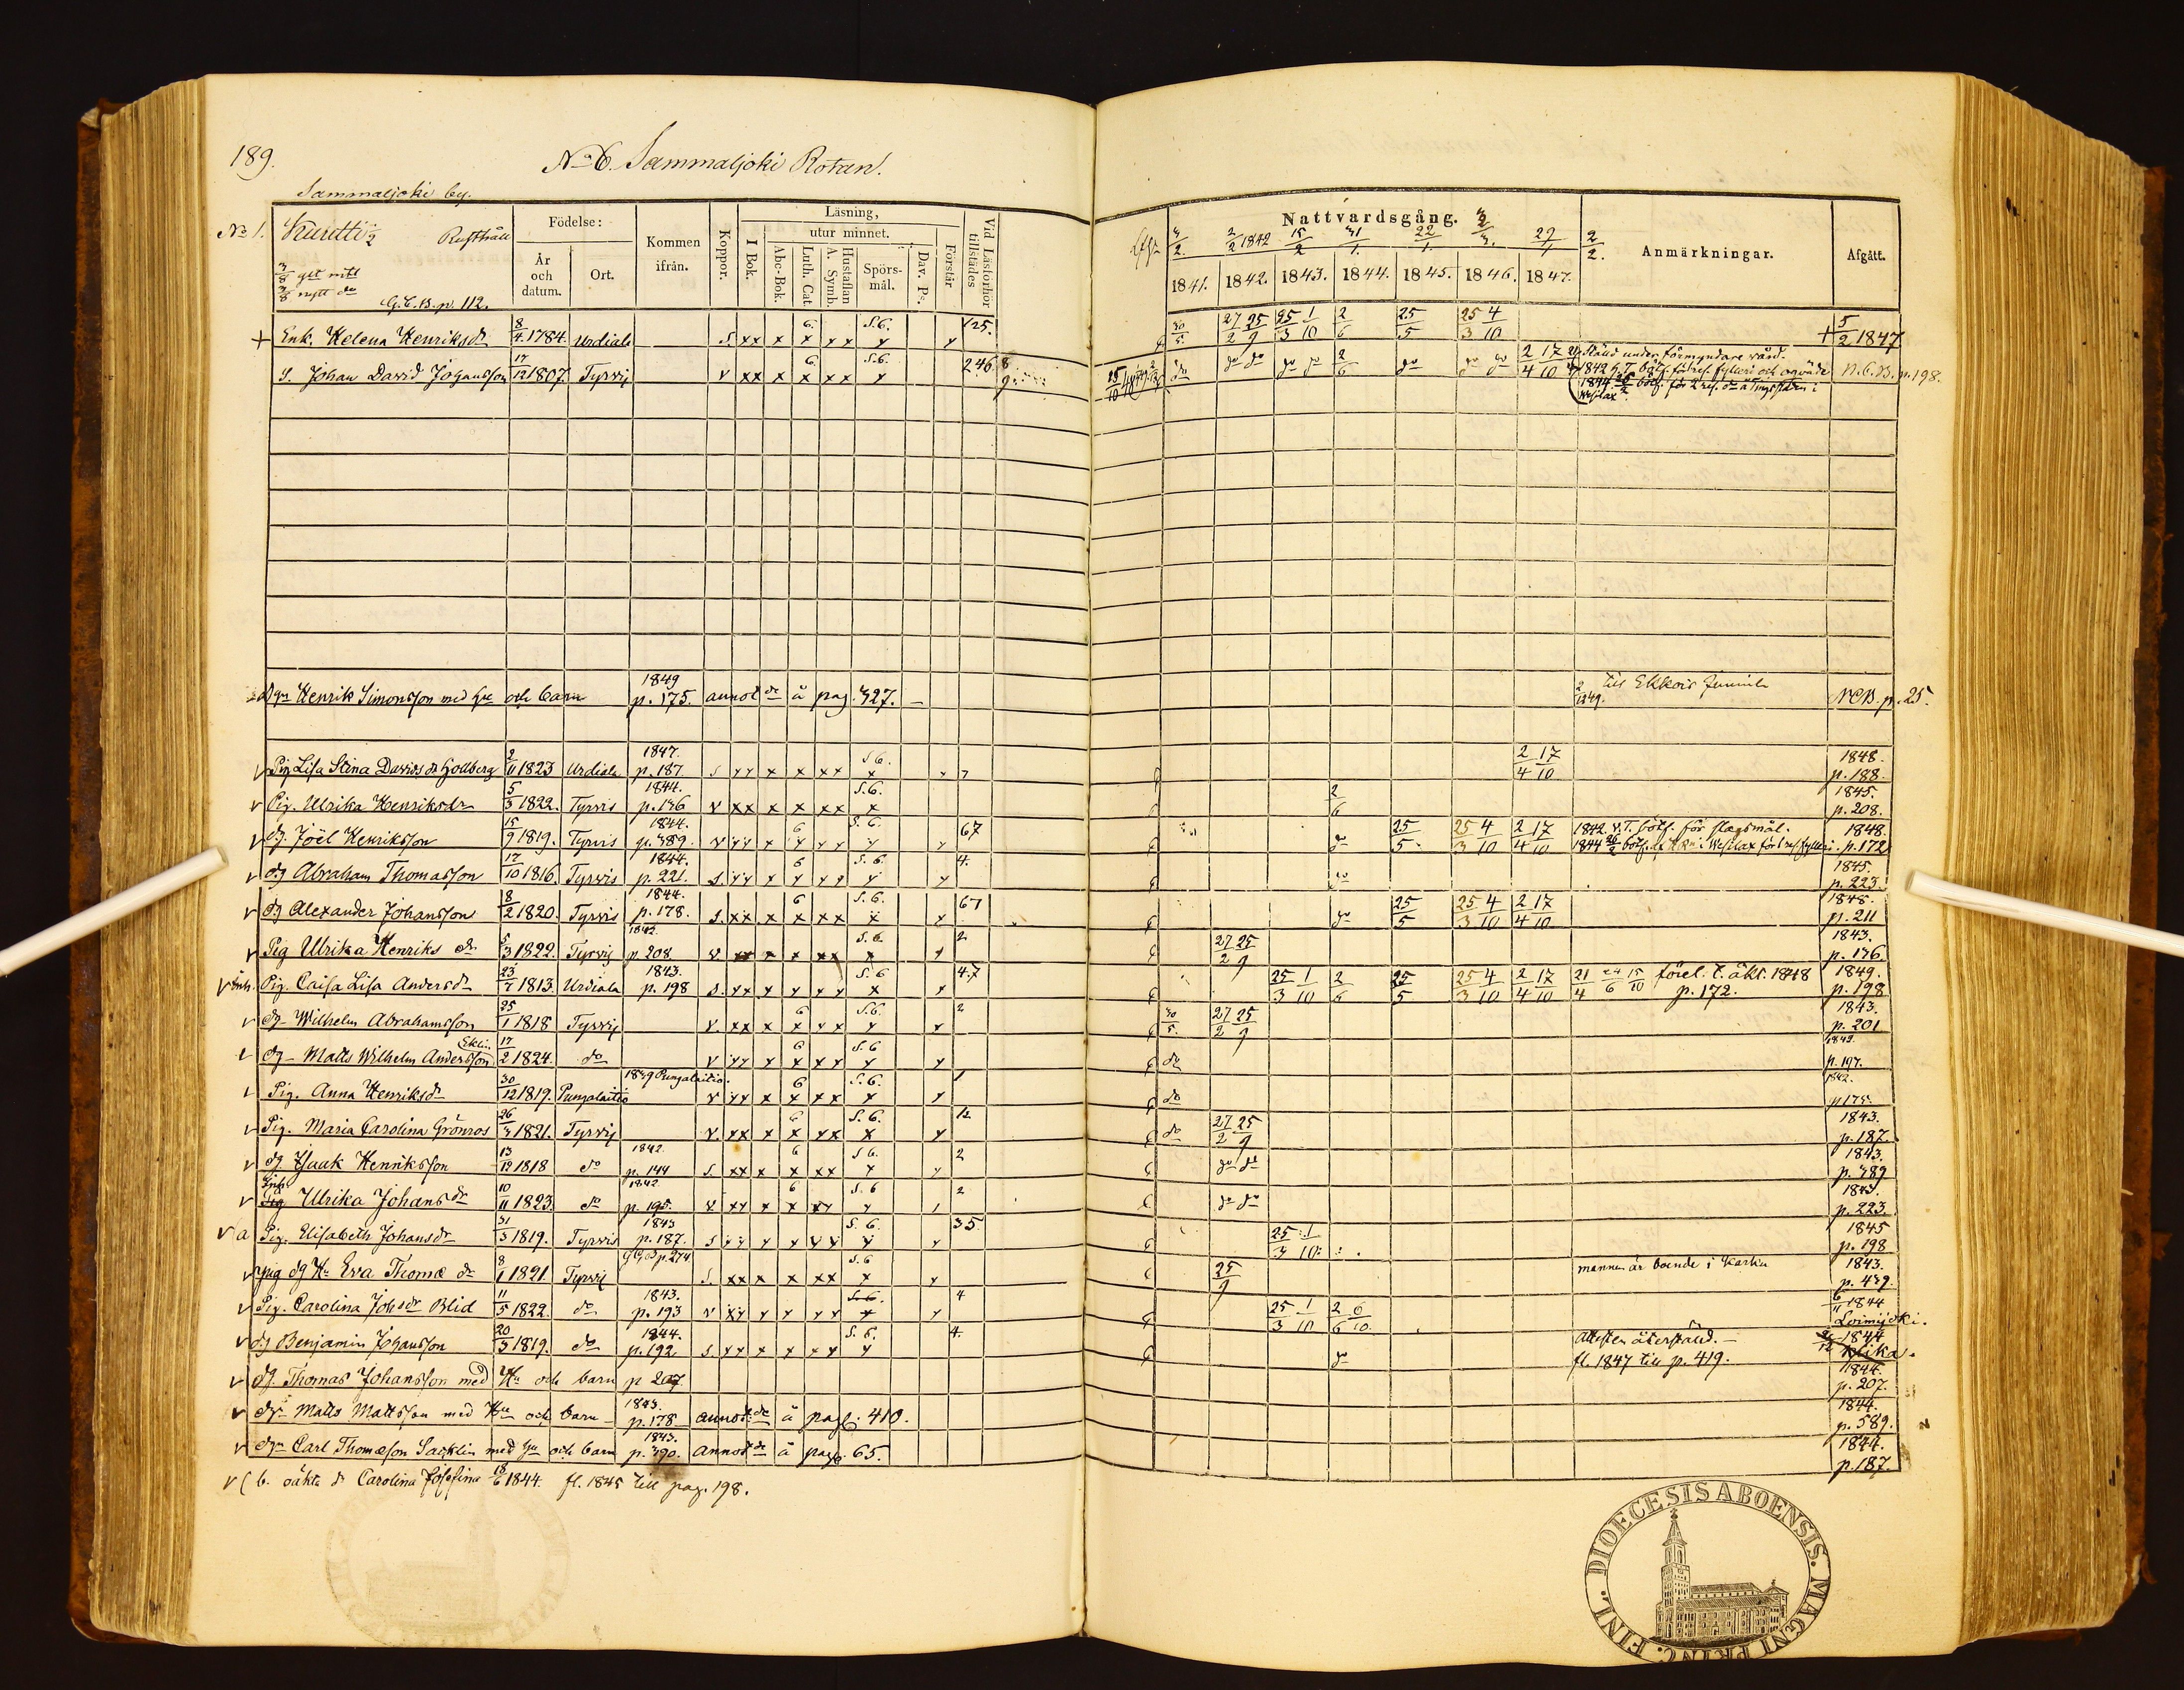 189.
No 6. Sammaljoki Rotan.
Sammaljoki by.
No 1. Kuretti 1/2 Rusthåll
G.C.B. p. 112.
Födelse:
År och datum.
Ort.
Kommen ifrån.
Koppor.
Läsning,
I Bok.
utur minnet.
Abc-Bok.
Luth. Cat.
Hustaflan A. Symb.
Spörs-mål.
Dav. Ps.
Förstår
Vid Läsförhör tillstädes
Nattvardsgång.
1841. 1842. 1843. 1844. 1845. 1846. 1847.
Anmärkningar.
Afgått.
+ Enk. Helena Henriksdr 8/4 1784. Urdiala S. xx x x xx x 6. S.6. 125. 30/5 27/2 25/9 25/3 1/10 2/6 25/5 25/3 4/10 + 5/2 1847
S. Johan David Johansson 17/12 1807. Tyrvis v xx x x xx x 6 S.6. 246 8 do 2/6 do 2/4 17/10 Ställd under förmyndare vård. N.C.B. p. 198.
1842 H.T. böt. för fylleri och oqväde
Henrik Simonsson med Hu och barn 1849 p. 175. annot de å pag. 327. 1849. NCB. p. 25.
v Pig Lisa Stina Davidsdr Hollberg 2/11 1823 Urdiala 1847. p. 187. S.6. 7 2/4 17/10 1848. p. 188.
v Pig. Ulrika Henriksdr 5/3 1822. Tyrvis 1844. p. 176 v S.6. 2/6 1845. p. 208.
v dg Joël Henriksson 15/9 1819. Tyrvis 1844. p. 389. v 6 S.6. 67 do 25/5 25/3 4/10 2/4 17/10 1842. V.T. böt. för slagsmål. 1848. p. 172
v dg Abraham Thomasson 17/10 1816. Tyrvis 1844. p. 221. S. 6 S.6. 4. do 1845. p. 223.
v dg Alexander Johansson 8/2 1820. Tyrvis 1844. p. 178. S. 6 S.6. 67 do 25/5 25/3 4/10 2/4 17/10 1848. p. 211
v Pig Ulrika Henriks dr 5/3 1822. Tyrvis 1842. p 208 v S.6. 2 27/2 25/9 1843. p. 176
v Inh. Pig. Caisa Lisa Andersdr 23/7 1813. Urdiala 1843. p. 198 S. S.6 47 25/3 1/10 2/6 25/5 25/3 4/10 2/4 17/10 21/4 24/6 15/10 förel. t. äkt. 1848 p. 172. 1849. p. 198
v dg Wilhelm Abrahamsson 25/1 1818 Tyrvis v 6 S.6. 2 30/5 27/2 25/9 1843. p. 201
v dg Matts Wilhelm Andersson Eklin 17/2 1824. do v 6 S.6 do 1842. p. 197.
v Pig. Anna Henriksdr 30/12 1819. Pungalaitio 1839 Pungalaitio. v 6 S.6. 1 do 1842. p 175.
v Pig. Maria Carolina Grönros 26/3 1821. Tyrvis v 6 S.6. 12 do 27/2 25/9 1843. p. 187.
v dg Isaak Henriksson 13/12 1818 do 1842. p. 144 S. 6 S6. 2 do do 1843. p. 389
v Inh. Pig Ulrika Johansdr 10/11 1823. do 1842 p. 195. v 6 S.6 2 do do 1843. p. 223.
v a Pig. Elisabeth Johansdr 31/3 1819. Tyrvis 1843 p. 187. S S.6. 35 25/3 1/10 1845 p. 198
v dg Hu Eva Thomæ dr 8/1 1821. Tyrvis GCB p. 274 S. S.6 25/9 mannen är boende i Karku 1843. p. 439.
v Pig. Carolina Johsdr Blid 11/5 1822. do 1843. p. 193 v S.6. 4 25/3 1/10 2/6 6/10 6/11 1844 Loimijoki.
v dg Benjamin Johansson 20/3 1819. do 1844. p. 192 S. S.6. 4. do Attesten återställd. 1844
fl. 1847 till p. 419.
v dg Thomas Johansson med Hu och barn p 207 1844. p. 207.
v dg Matts Mattsson med Hu och barn 1843. p. 178 annot. de å pag. 410. 1844. p. 589.
v dgn Carl Thomasson Sacklin med Hu och barn 1843. p. 390. annot de å pag. 65. 1844. p. 187.
v ( b. oäkta dr Carolina Josefina 18/6 1844. fl. 1845 till pag. 198.
DIOECESIS ABOENSIS. MAGNI PRINC. FINL.